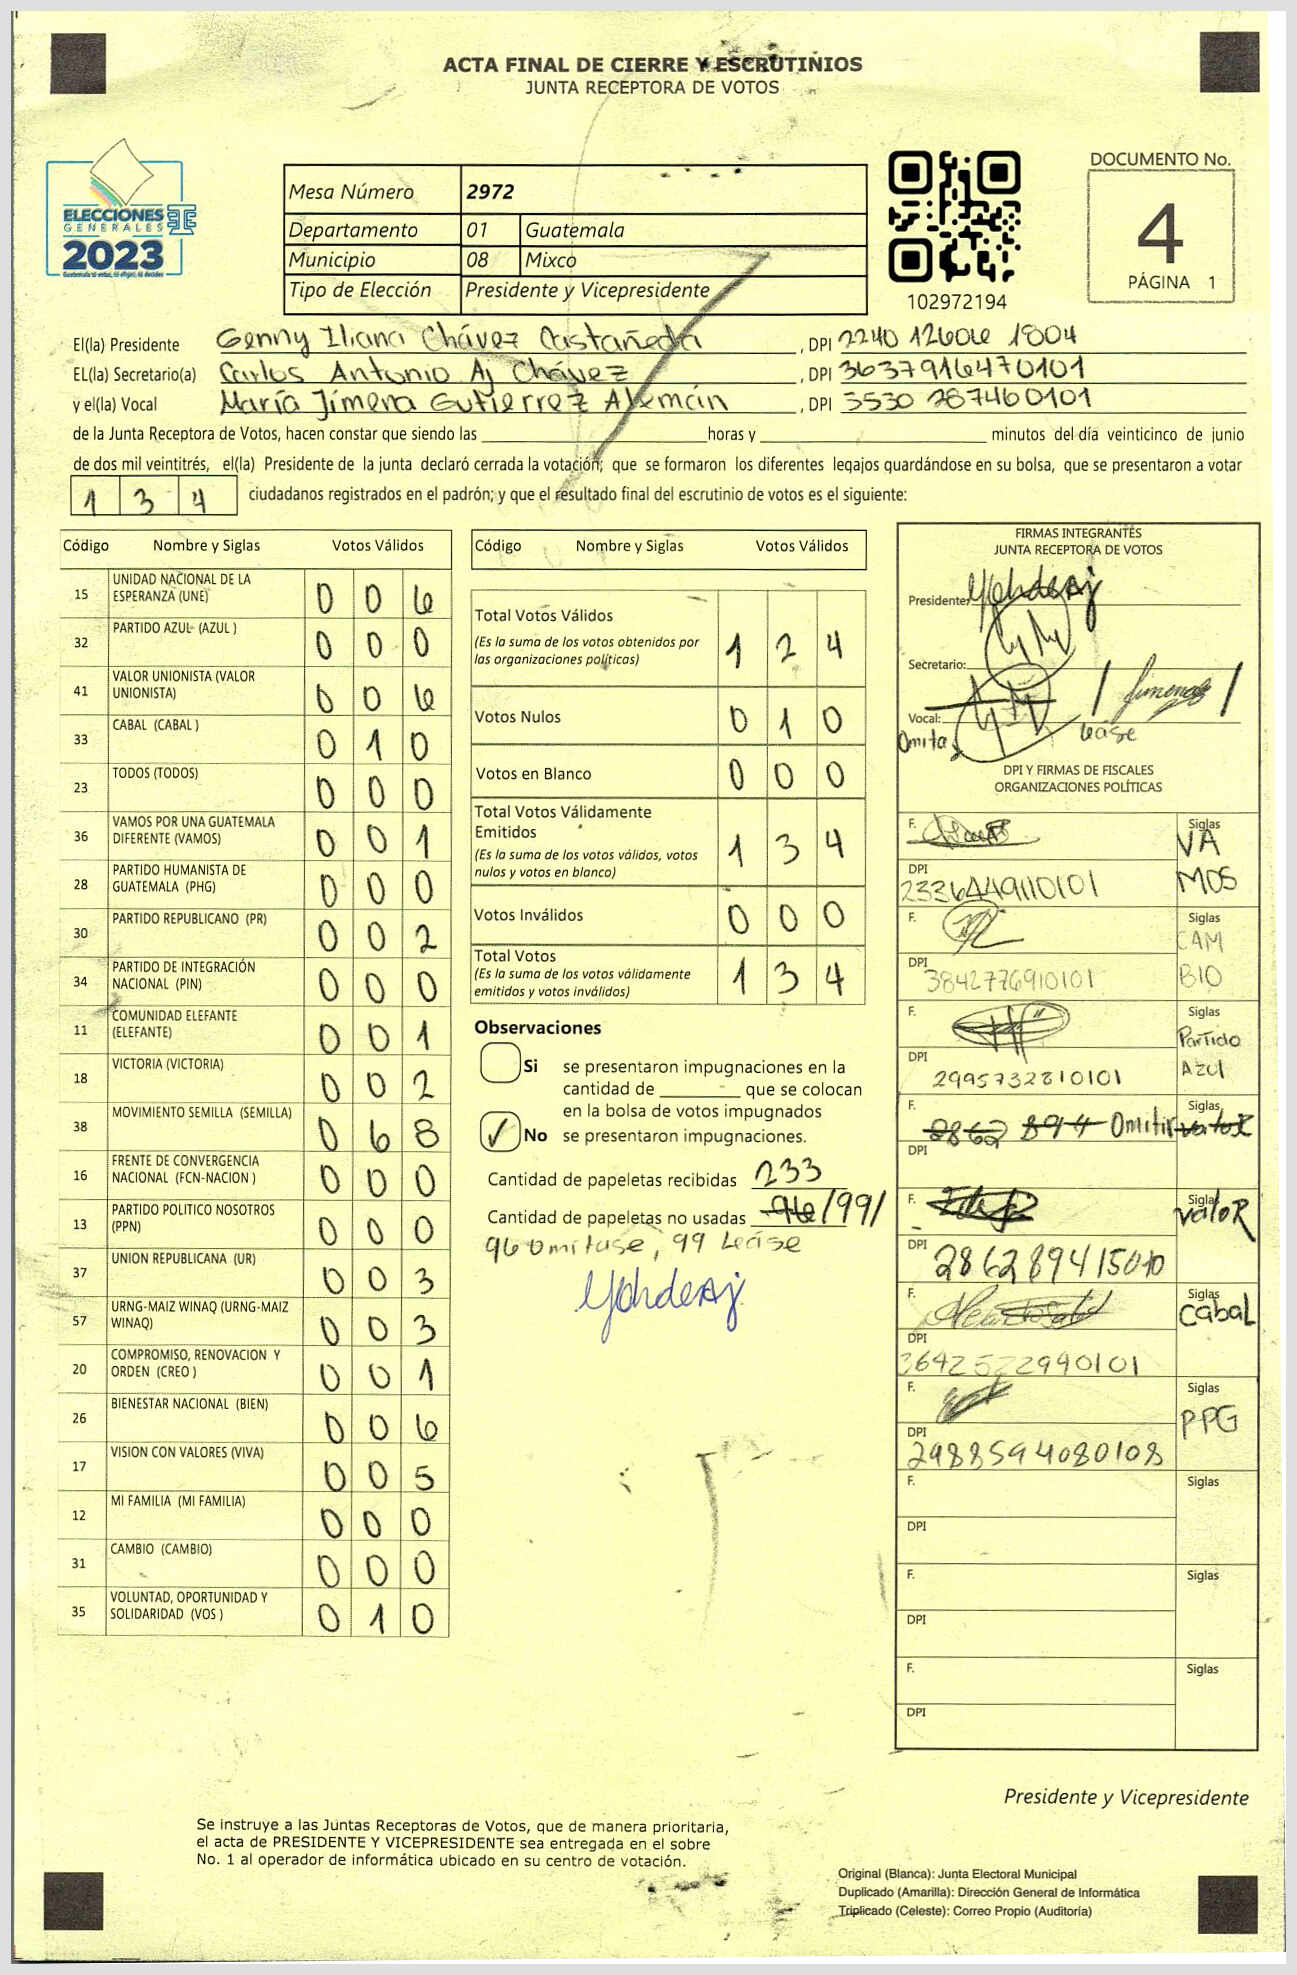 ACTA FINAL DE CIERRE Y ESCRUTINIOS
JUNTA RECEPTORA DE VOTOS
ELECCIONES
GENERALES
2023
Mesa Número 2972
Departamento 01 Guatemala
Municipio 08 Mixco
Tipo de Elección Presidente y Vicepresidente
102972194
DOCUMENTO No.
4
PÁGINA 1
El(la) Presidente Genny Iliana Chávez Castañeda, DPI 2240 12606 1804
EL(la) Secretario(a) Carlos Antonio Aj Chávez, DPI 3637916470101
y el(la) Vocal María Jimena Gutierrez Alemán, DPI 3530 287460101
de la Junta Receptora de Votos, hacen constar que siendo las horas y minutos del día veinticinco de junio
de dos mil veintitrés, el(la) Presidente de la junta declaró cerrada la votación; que se formaron los diferentes legajos guardándose en su bolsa, que se presentaron a votar
1 3 4 ciudadanos registrados en el padrón; y que el resultado final del escrutinio de votos es el siguiente:
Código Nombre y Siglas Votos Válidos
15 UNIDAD NACIONAL DE LA ESPERANZA (UNE) 0 0 6
32 PARTIDO AZUL (AZUL ) 0 0 0
41 VALOR UNIONISTA (VALOR UNIONISTA) 0 0 6
33 CABAL (CABAL ) 0 1 0
23 TODOS (TODOS) 0 0 0
36 VAMOS POR UNA GUATEMALA DIFERENTE (VAMOS) 0 0 1
28 PARTIDO HUMANISTA DE GUATEMALA (PHG) 0 0 0
30 PARTIDO REPUBLICANO (PR) 0 0 2
34 PARTIDO DE INTEGRACIÓN NACIONAL (PIN) 0 0 0
11 COMUNIDAD ELEFANTE (ELEFANTE) 0 0 1
18 VICTORIA (VICTORIA) 0 0 2
38 MOVIMIENTO SEMILLA (SEMILLA) 0 6 8
16 FRENTE DE CONVERGENCIA NACIONAL (FCN-NACION ) 0 0 0
13 PARTIDO POLITICO NOSOTROS (PPN) 0 0 0
37 UNION REPUBLICANA (UR) 0 0 3
57 URNG-MAIZ WINAQ (URNG-MAIZ WINAQ) 0 0 3
20 COMPROMISO, RENOVACION Y ORDEN (CREO ) 0 0 1
26 BIENESTAR NACIONAL (BIEN) 0 0 6
17 VISION CON VALORES (VIVA) 0 0 5
12 MI FAMILIA (MI FAMILIA) 0 0 0
31 CAMBIO (CAMBIO) 0 0 0
35 VOLUNTAD, OPORTUNIDAD Y SOLIDARIDAD (VOS ) 0 1 0
Código Nombre y Siglas Votos Válidos
Total Votos Válidos 1 2 4
(Es la suma de los votos obtenidos por
las organizaciones políticas)
Votos Nulos 0 1 0
Votos en Blanco 0 0 0
Total Votos Válidamente
Emitidos 1 3 4
(Es la suma de los votos válidos, votos
nulos y votos en blanco)
Votos Inválidos 0 0 0
Total Votos 1 3 4
(Es la suma de los votos válidamente
emitidos y votos inválidos)
Observaciones
Si se presentaron impugnaciones en la
cantidad de que se colocan
en la bolsa de votos impugnados
✓ No se presentaron impugnaciones.
Cantidad de papeletas recibidas 233
Cantidad de papeletas no usadas 96 /99/
96 Omitase, 99 Lease
FIRMAS INTEGRANTES
JUNTA RECEPTORA DE VOTOS
Presidente:
Secretario:
Vocal:
Omita
lease
Jimena
DPI Y FIRMAS DE FISCALES
ORGANIZACIONES POLÍTICAS
F. Siglas VAMOS
DPI 2336449110101
F. Siglas CAMBIO
DPI 3842776910101
F. Siglas Partido Azul
DPI 2995732810101
F. 2862 894 Omitir Siglas
DPI
F. Siglas valoR
DPI 2862894150101
F. Siglas CabaL
DPI 3642522990101
F. Siglas PPG
DPI 2988594080108
F. Siglas
DPI
F. Siglas
DPI
F. Siglas
DPI
Presidente y Vicepresidente
Se instruye a las Juntas Receptoras de Votos, que de manera prioritaria,
el acta de PRESIDENTE Y VICEPRESIDENTE sea entregada en el sobre
No. 1 al operador de informática ubicado en su centro de votación.
Original (Blanca): Junta Electoral Municipal
Duplicado (Amarilla): Dirección General de Informática
Triplicado (Celeste): Correo Propio (Auditoría)